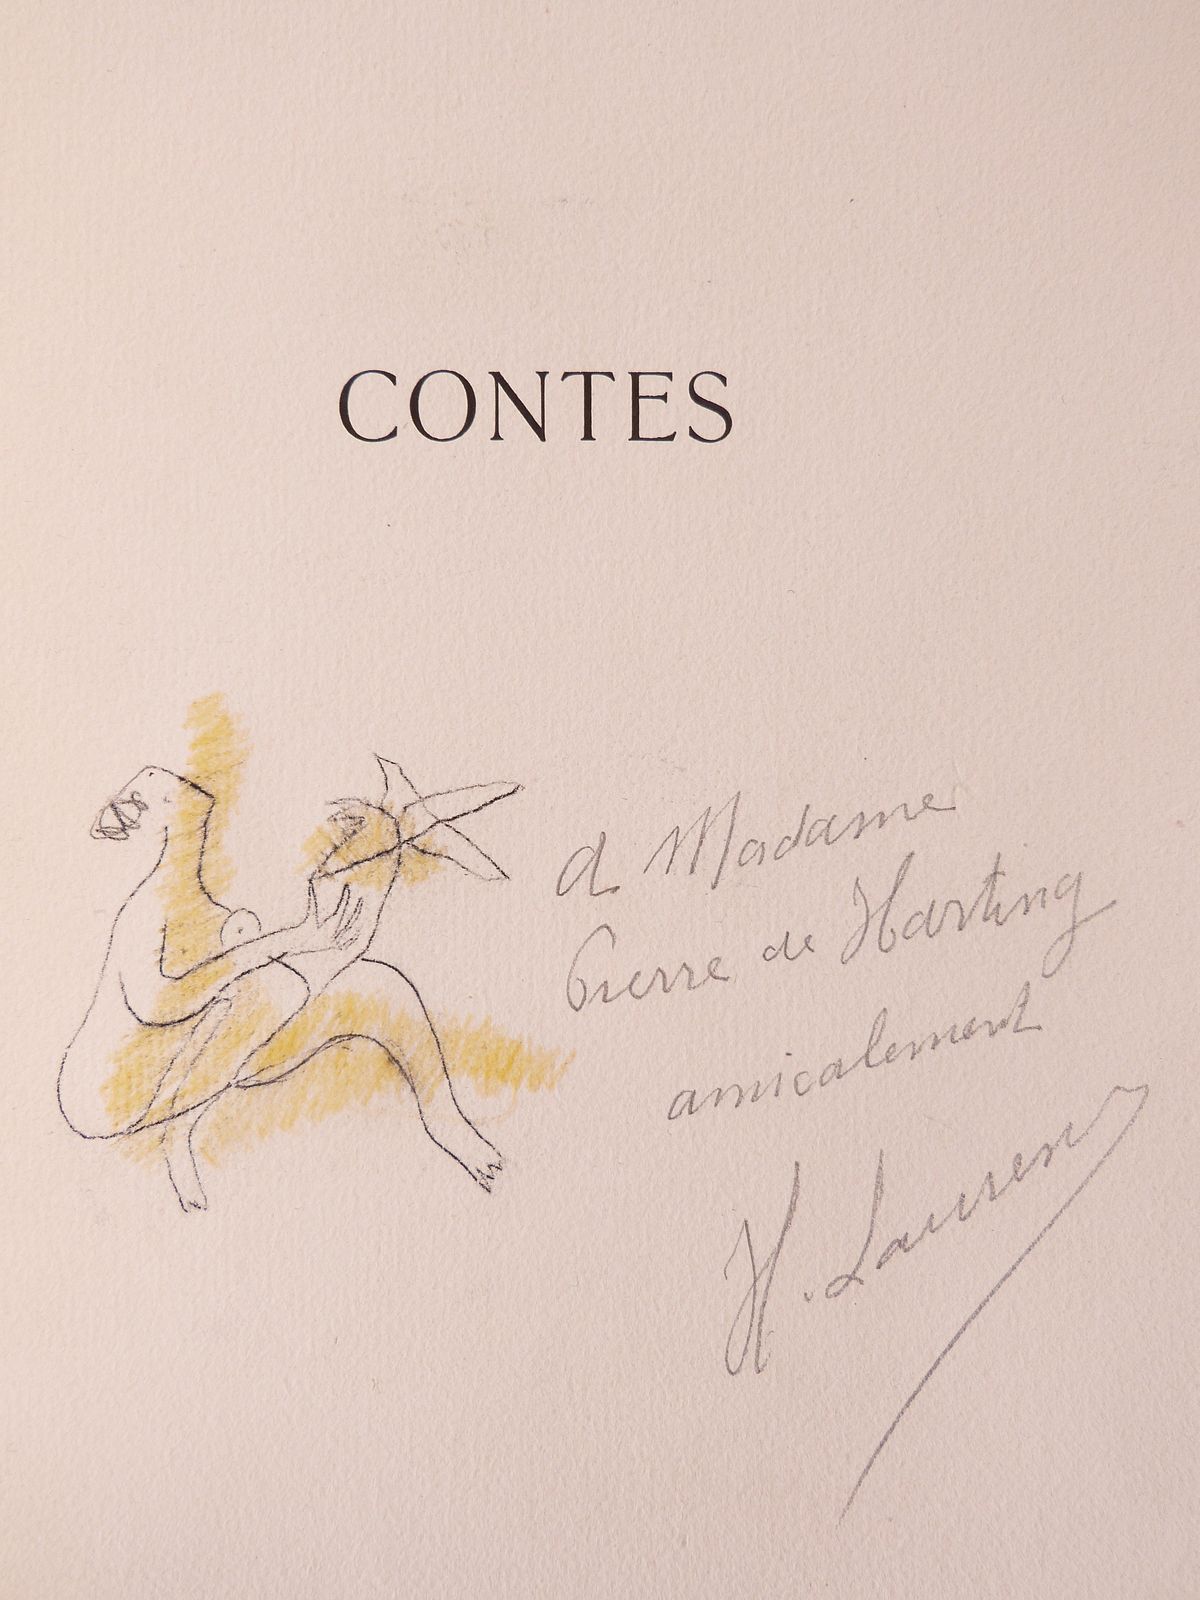 CONTES
à Madame
Pierre de Harting
amicalement
H. Laurens